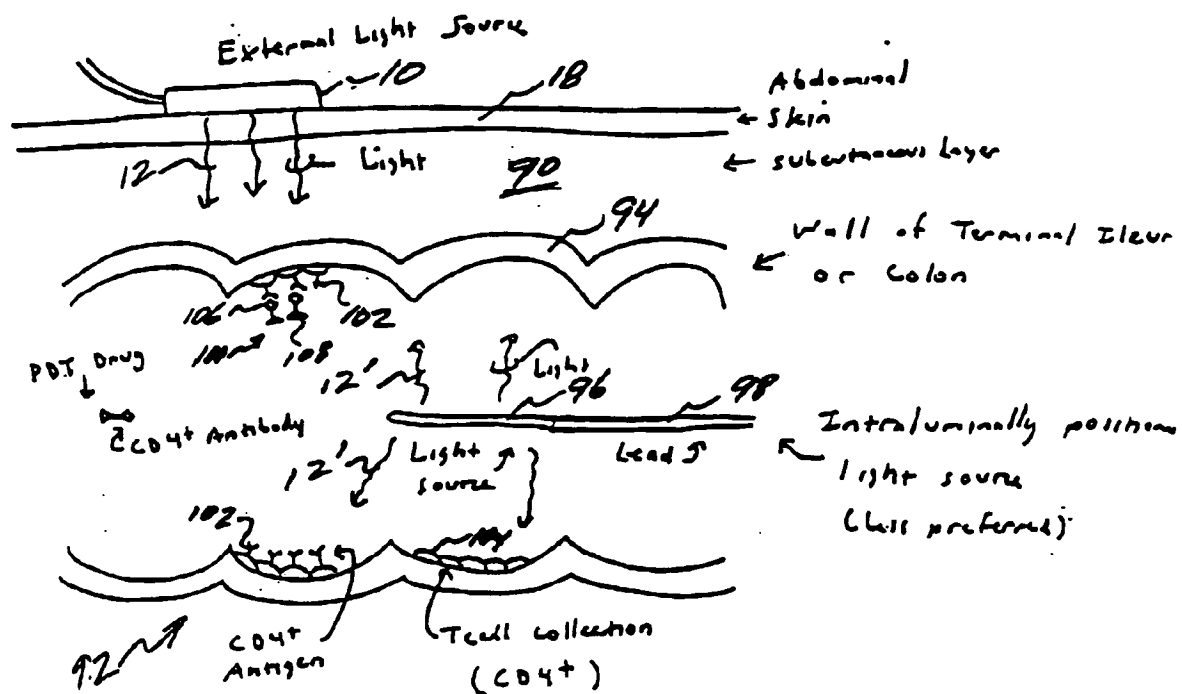 External Light Source
10
18
Abdominal
Skin
12
Light
90
subcutaneous Layer
94
Wall of Terminal Ileum
or Colon
106
102
108
PDT Drug
12'
Light
96
98
CD4+ Antibody
12'
Light
source
Lead
Intraluminally positions
light source
(less preferred)
102
104
CD4+
Antigen
Tcell collection
(CD4+)
92